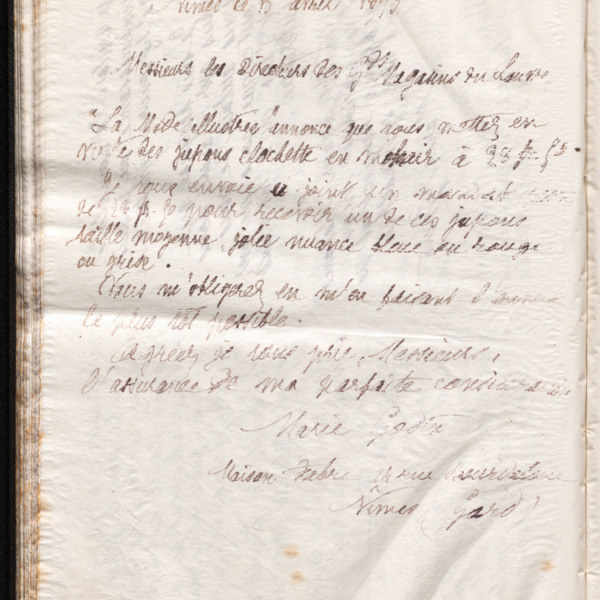 Nimes le 13 avril 1895
Messieurs les Directeurs des Gds Magasins du Louvre
"La Mode illustrée" annonce que vous mettez en
vente des jupons clochette en mohair à 28 f 50.
Je vous envoie ci joint un mandat
de 28 f. 50 pour recevoir un de ces jupons
taille moyenne, jolie nuance bleue ou rouge
ou grise.
Vous m'obligerez en m'en faisant l'envoi
le plus tôt possible.
Agréez je vous prie, Messieurs,
l'assurance de ma parfaite considération
Marie Godin
Maison Fabre 14 rue Bourdaloue
Nimes (Gard)